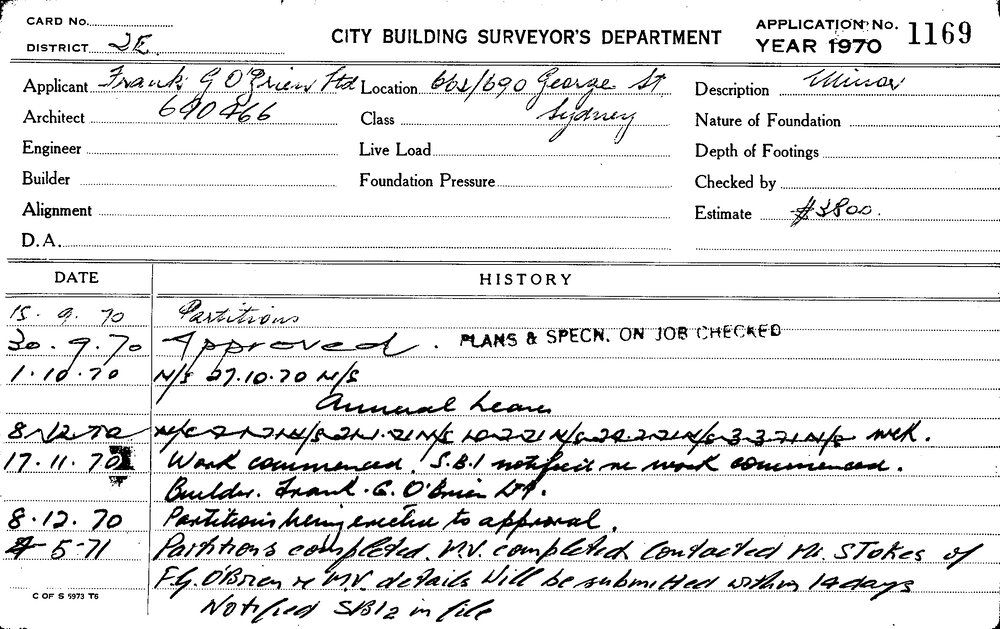 CARD No.
DISTRICT 2E
CITY BUILDING SURVEYOR'S DEPARTMENT
APPLICATION No. 1169
YEAR 1970
Applicant Frank G O'Brien Ltd
Location 664/690 George St
Sydney
Description Minor
Architect 690466
Class
Nature of Foundation
Engineer
Live Load
Depth of Footings
Builder
Foundation Pressure
Checked by
Alignment
Estimate $3800.
D.A.
DATE HISTORY
15.9.70 Partitions
30.9.70 Approved. PLANS & SPECN. ON JOB CHECKED
1.10.70 N/S 27.10.70 N/S
Annual Leave
8.12.70 N/S N/S 21.1.71 N/S 10.2.71 N/S N/S 3.3.71 N/S
17.11.70 Work commenced. S.B.1 notified re work commenced.
Builder. Frank. G. O'Brien Ltd.
8.12.70 Partitions being erected to approval.
5-71 Partitions completed. M.V. completed. Contacted Mr. Stokes of
F.G. O'Brien re M.V. details Will be submitted within 14 days
Notified SB12 in file
C OF S 5973 T6